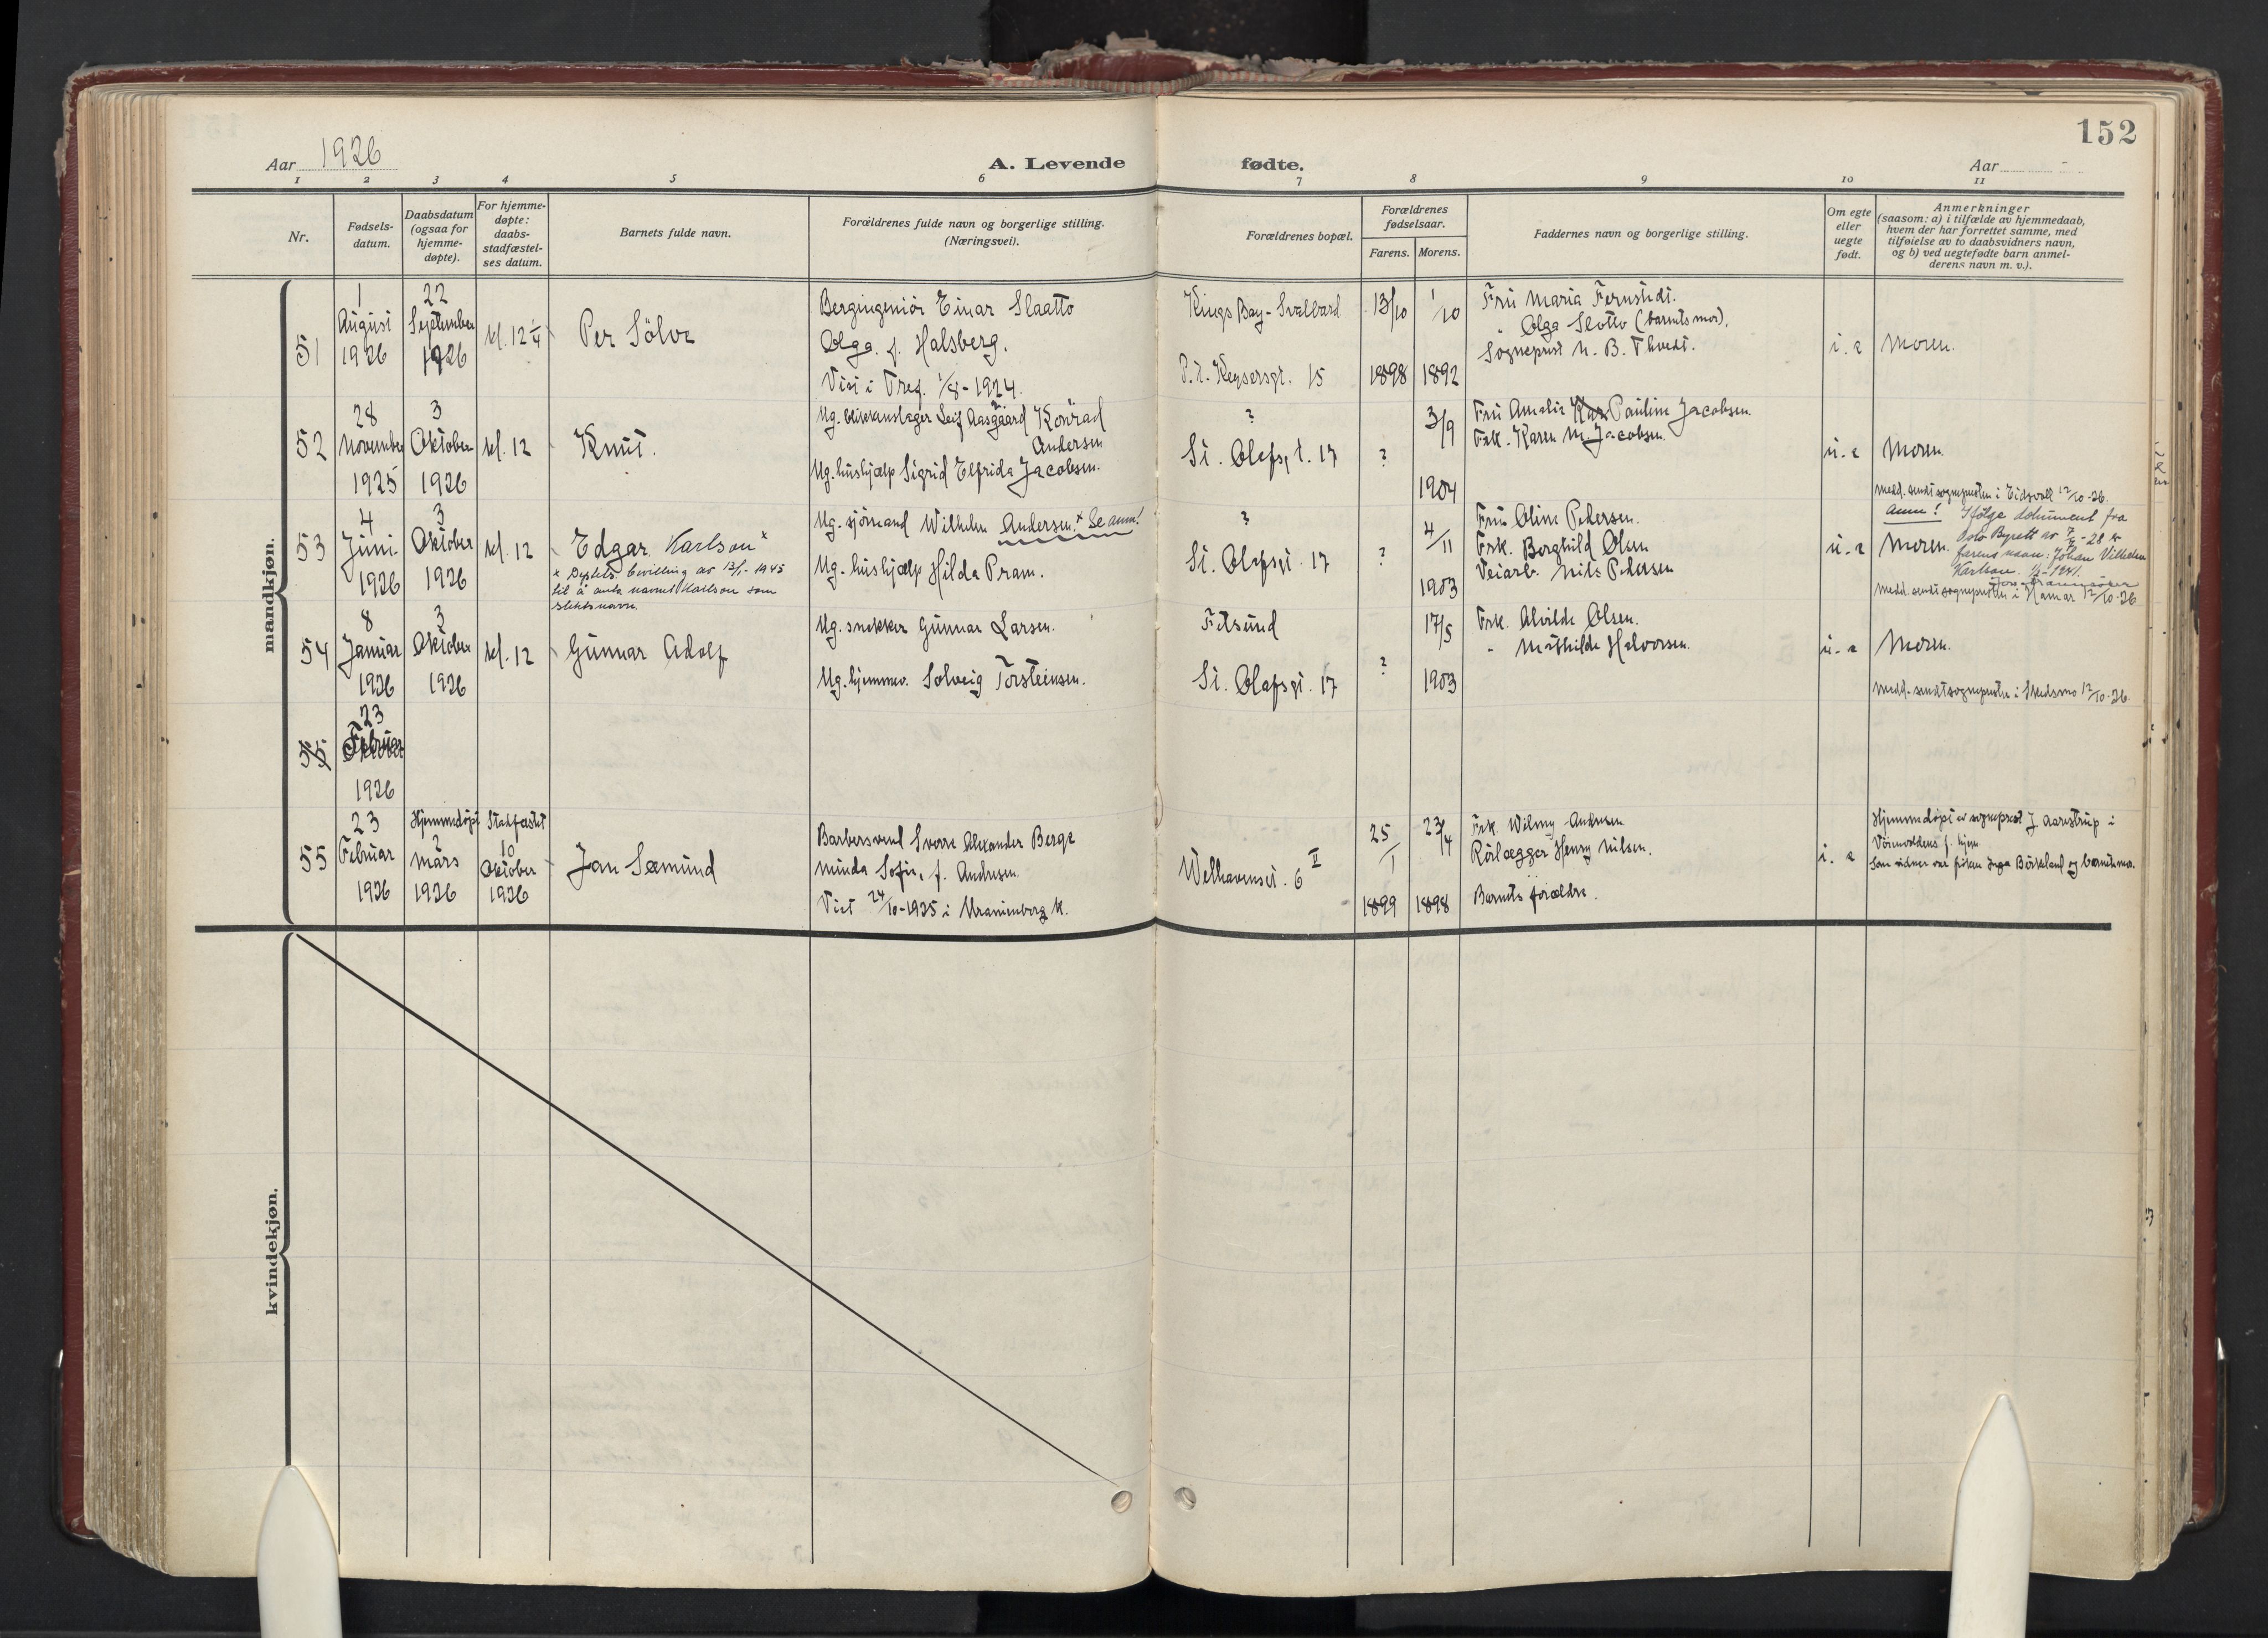 152
Aar 1926
A. Levende fødte.
Aar
1 2 3 4 5 6 7 8 9 10 11
Nr.
Fødsels-
datum.
Daabsdatum
(ogsaa for
hjemme-
døpte).
For hjemme-
døpte:
daabs-
stadfæstel-
ses datum.
Barnets fulde navn.
Forældrenes fulde navn og borgerlige stilling.
(Næringsvei).
Forældrenes bopæl.
Forældrenes
fødselsaar.
Farens. Morens.
Faddernes navn og borgerlige stilling.
Om egte
eller
uegte
født.
Anmerkninger
(saasom: a) i tilfælde av hjemmedaab,
hvem der har forrettet samme, med
tilføielse av to daabsvidners navn,
og b) ved uegtefødte barn anmel-
derens navn m. v.).
mandkjøn.
51
1
August
1926
22
September
1926
kl. 12 1/4
Per Sölve
Bergingeniör Einar Slaatto
Olga f. Halsberg.
Viet i Tref. 1/8-1924.
Kings Bay - Svalbard
P.t. Keysersgt. 15
13/10
1898
1/10
1892
Fru Maria Fernstedt.
" Olga Slotto (barnets mor).
Sogneprest N. B. Thvedt.
i. e
Moren.
52
28
November
1925
3
Oktober
1926
kl. 12
Knut.
Ug. blikkenslager Leif Aasgaard Konrad
Andersen
Ug. hushjælp Sigrid Elfrida Jacobsen.
?
St. Olafsgt. 17
?
3/9
1904
Fru Amalie Pauline Jacobsen.
Frk. Karen M. Jacobsen.
u. e
Moren.
medd. sendt sognepresten i Eidsvoll 12/10-26.
53
4
Juni
1926
3
Oktober
1926
kl. 12
Edgar Karlson x
x Dep[tets] bevilling av 13/1-1945
til å anta navnet Karlson som
slektsnavn.
Ug. sjömand Wilhelm Andersen. x Se anm!
Ug. hushjælp Hilda Pram.
?
St. Olafsgt. 17
?
4/11
1903
Fru Oline Pedersen.
Frk. Berghild Olsen
Veiarb. Nils Pedersen
u. e
Moren.
Anm! Ifölge dokument fra
Oslo Byrett av 7/2-28 er
farens navn: Johan Vilhelm
Karlson. 1/2-1941.
medd. sendt sognepresten i Hamar 12/10-26
54
8
Januar
1926
3
Oktober
1926
kl. 12
Gunnar Adolf
Ug. snekker Gunnar Larsen.
Ug. hjemmev. Solveig Torsteinsen.
Fetsund
St. Olafsgt. 17
?
17/5
1903
Frk. Alvilde Olsen.
" Mathilde Halvorsen.
u. e
Moren.
medd. sendt sognepresten i Skedsmo 12/10-26.
55
23
Februar
1926
55
23
Februar
1926
Hjemmedöpt
2
Mars
1926
Stadfæstet
10
Oktober
1926
Jan Sæmund
Barbersvend Sverre Alexander Berge
Minda Sofie, f. Andresen.
Viet 24/10-1925 i Uranienborg K.
Welhavensgt. 6 II
25/1
1899
23/4
1898
Frk. Wilmy Andresen
Rörlægger Henry Nilsen.
Barnets forældre.
i. e
Hjemmedöpt av sogneprest J. Aarestrup i
hjem
Som vidner var fröken Inga Börkland og barnets mor.
kvindekjøn.